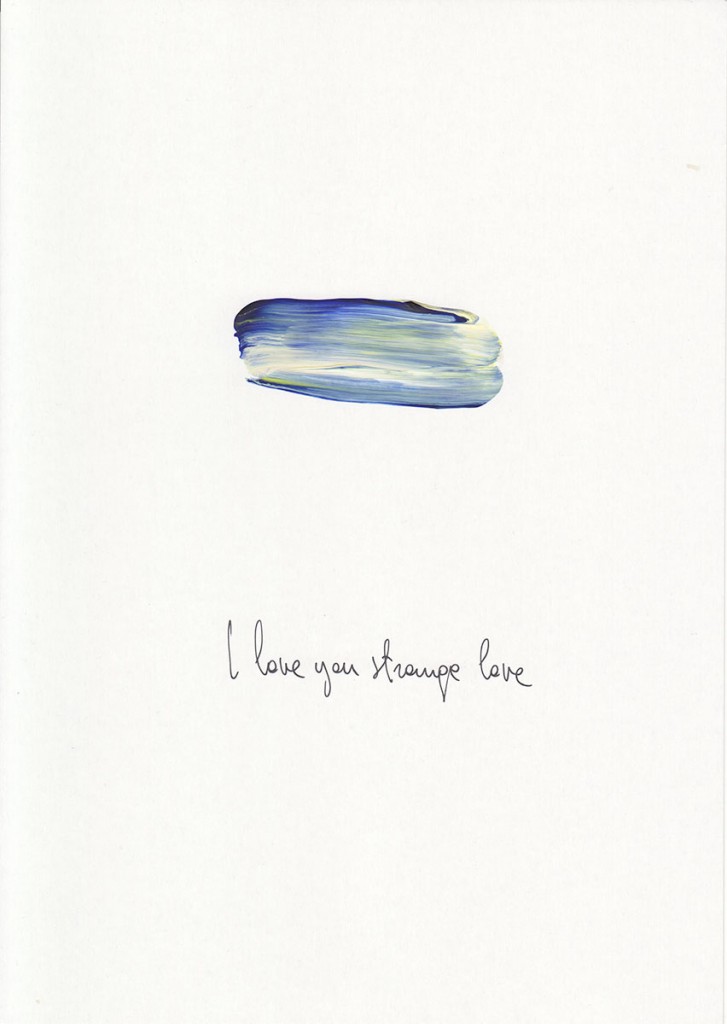 I love you strange love